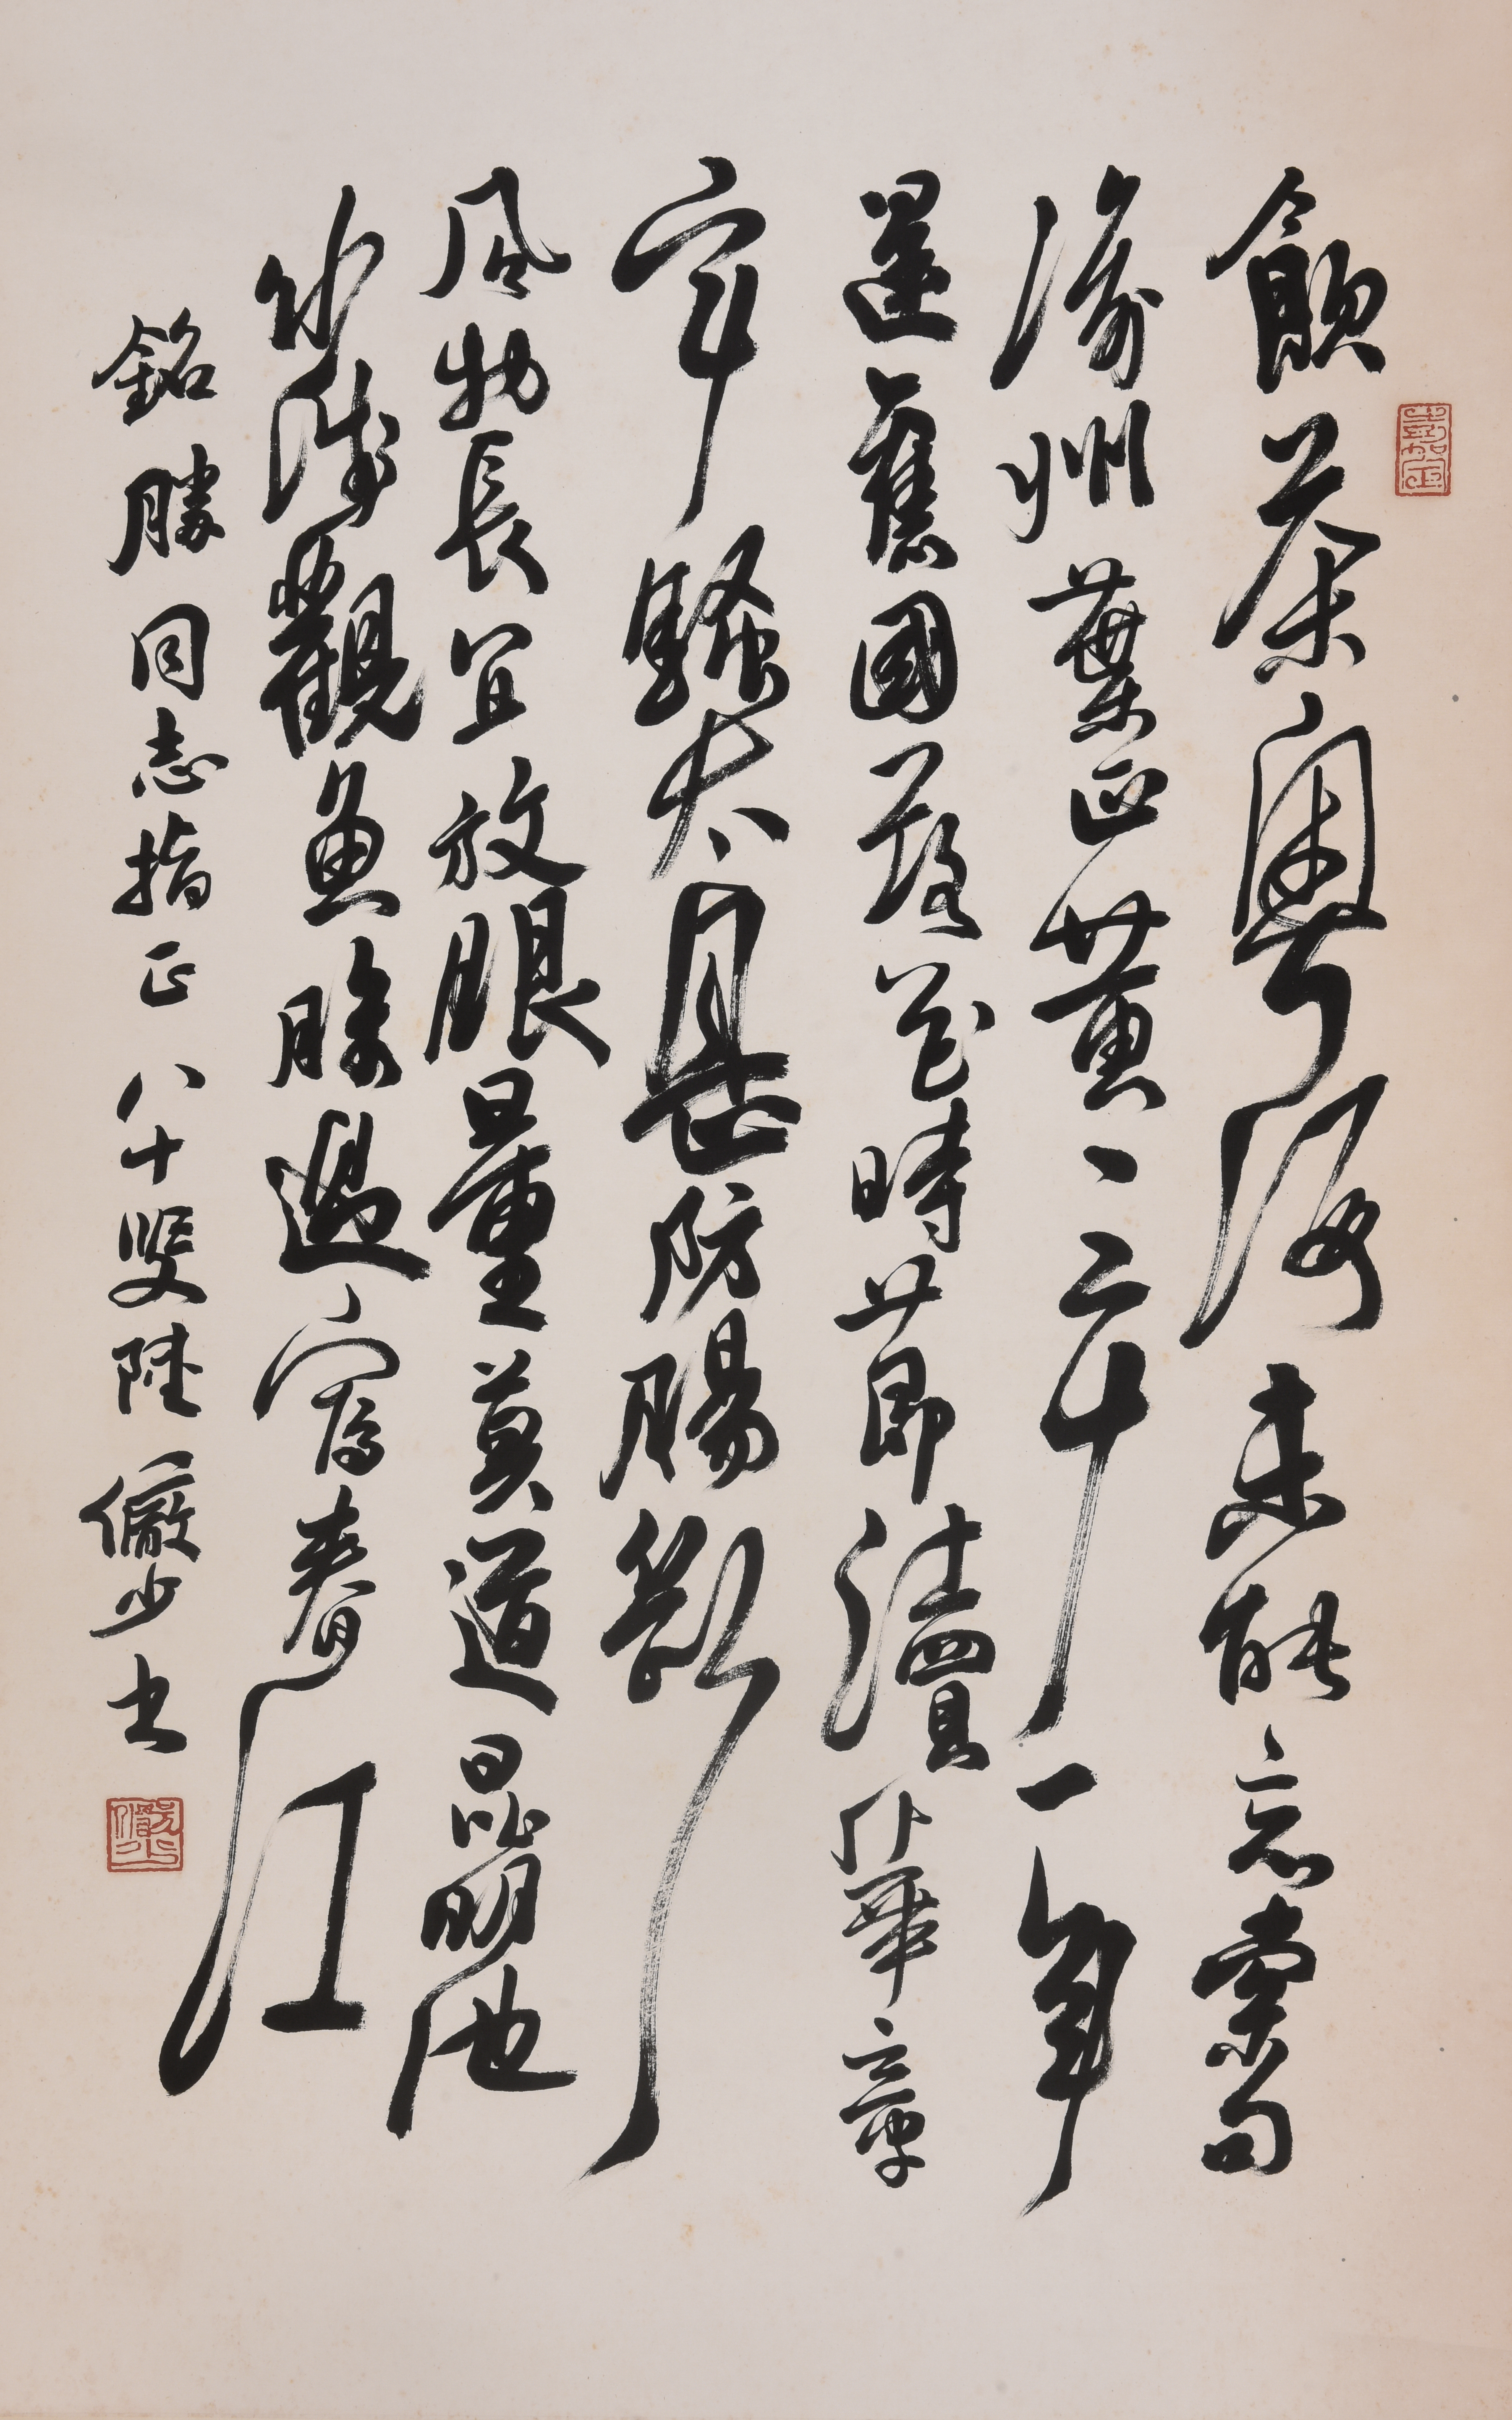 嘉定
飲茶粵海未能忘索句
渝州葉正黄、三十一年
還舊國落花時節讀華章
牢騷太盛防腸斷
風物長宜放眼量莫道昆明池
水淺觀魚勝過富春江
銘勝同志指正 八十叟陸儼少書